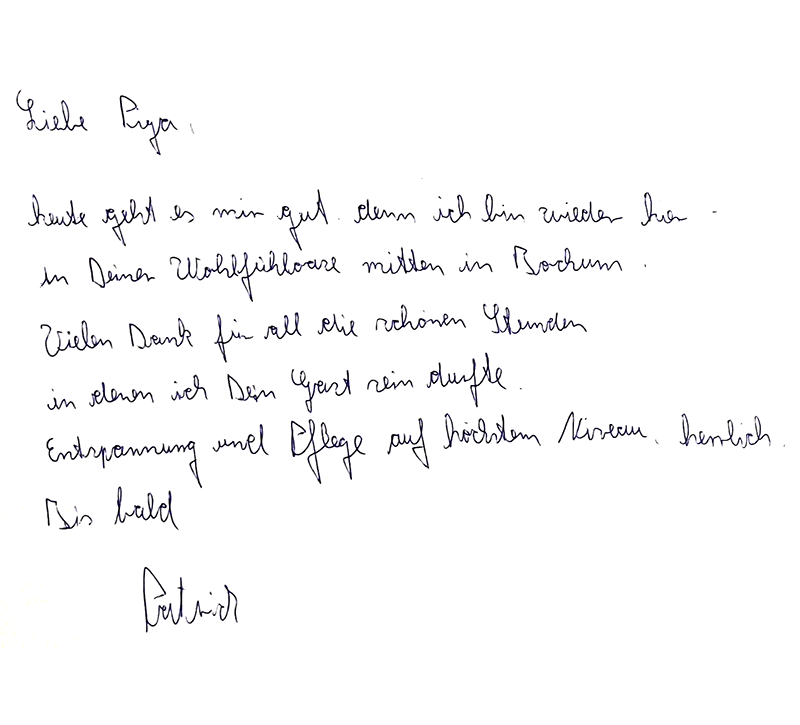 Liebe Pirya,
heute geht es mir gut, denn ich bin wieder hier -
in Deiner Wohlfühloase mitten in Bochum.
Vielen Dank für all die schönen Stunden
in denen ich Dein Gast sein durfte.
Entspannung und Pflege auf höchstem Niveau, herrlich.
Bis bald
Patrick